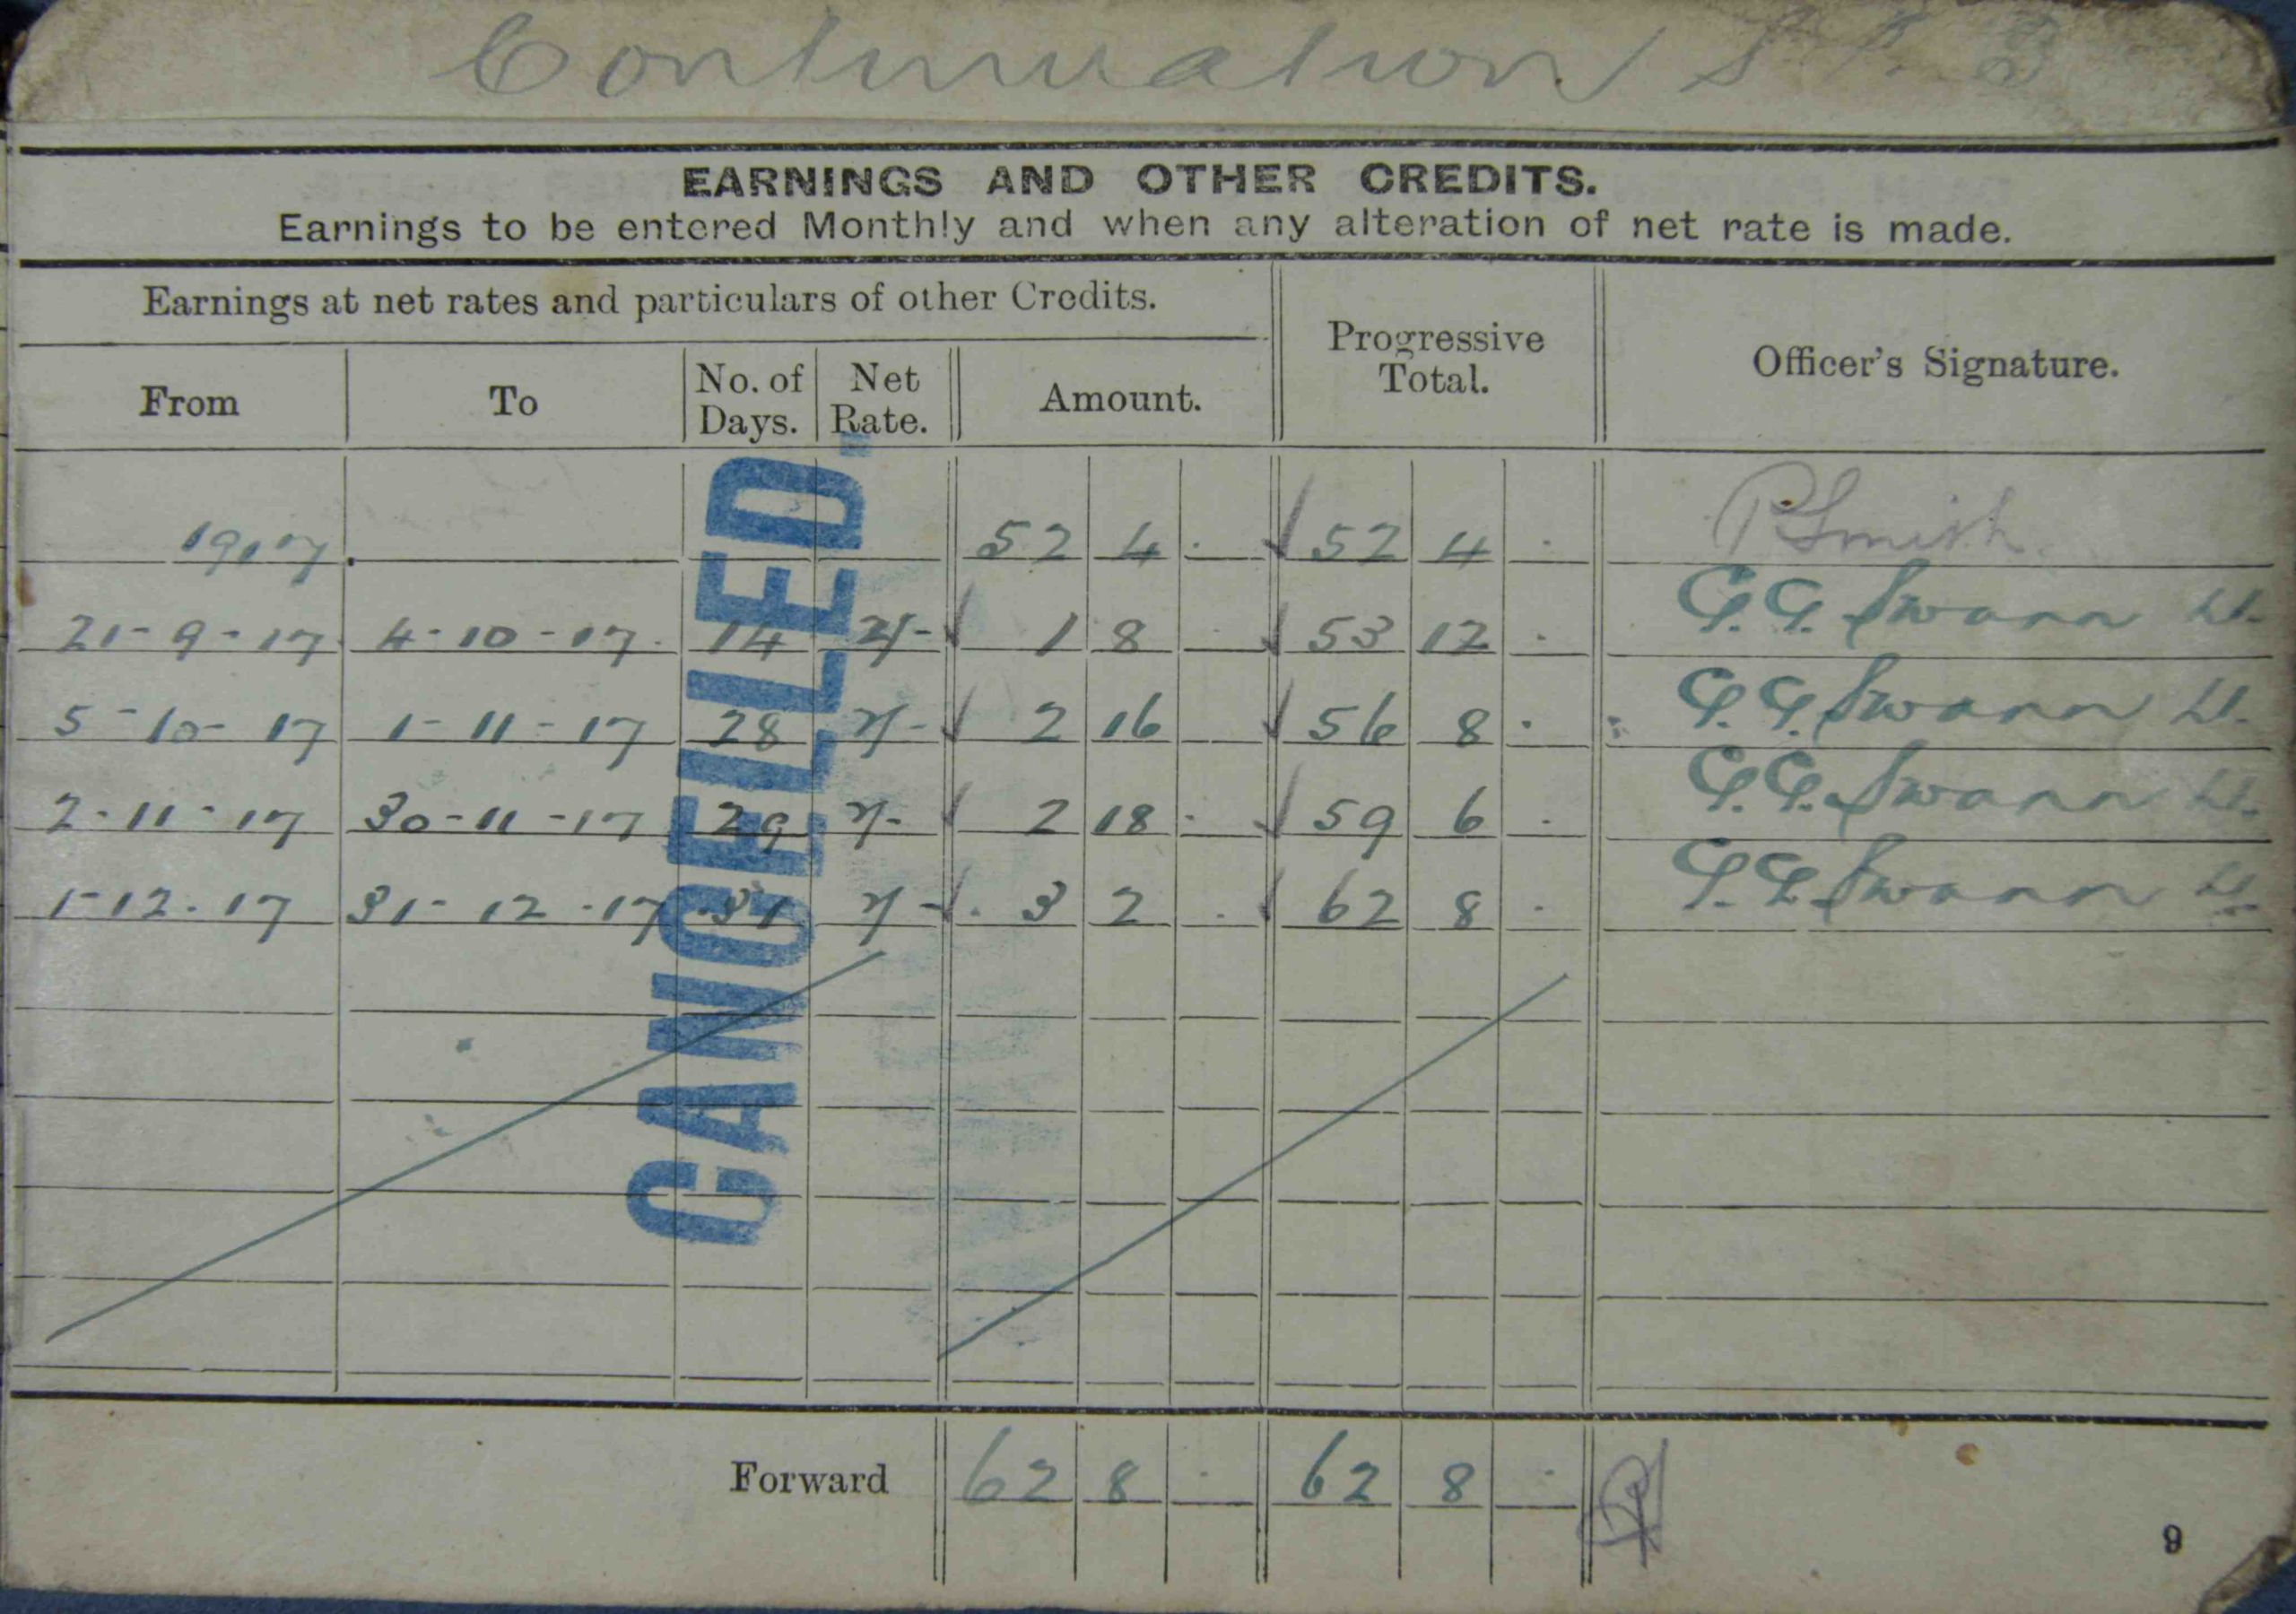 Continuation
EARNINGS AND OTHER CREDITS.
Earnings to be entered Monthly and when any alteration of net rate is made.
Earnings at net rates and particulars of other Credits.
Progressive Total.
Officer's Signature.
From To No. of Days. Net Rate. Amount.
1917. 52 4 - 52 4 - P Smith
21-9-17 4-10-17 14 2/- 1 8 - 53 12 - G. G. Swann Lt.
5-10-17 1-11-17 28 2/- 2 16 56 8 - G. G. Swann Lt.
2-11-17 30-11-17 29 2/- 2 18 - 59 6 - G. G. Swann Lt.
1-12-17 31-12-17 31 2/- 3 2 - 62 8 - G. G. Swann Lt.
CANCELLED.
Forward 62 8 - 62 8 -
9